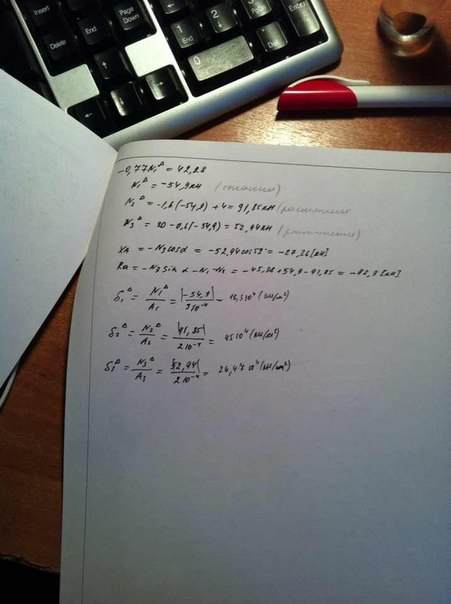 Insert
Home
Page Up
Delete
End
Page Down
End
0
Ins
Del
-0,77N₁ᐃ = 42,28
N₁ᐃ = -54,9кН (сжатие)
N₂ᐃ = -1,6(-54,9) + 4 = 91,85кН (растяжение)
N₃ᐃ = 20 - 0,6(-54,9) = 52,94кН (растяжение)
Xa = -N₃cosα = -52,94cos59° = -27,26[кН]
Ra = -N₃sinα - N₁ - N₂ = -45,38 + 54,9 - 91,85 = -82,3[кН]
δ₁ᐃ = N₁ᐃ/A₁ = |-54,9|/3·10⁻⁴ = 18,3·10⁴(кН/см²)
δ₂ᐃ = N₂ᐃ/A₂ = |91,85|/2·10⁻⁴ = 45·10⁴(кН/см²)
δ₃ᐃ = N₃ᐃ/A₃ = |52,94|/2·10⁻⁴ = 26,47·10⁴(кН/см²)